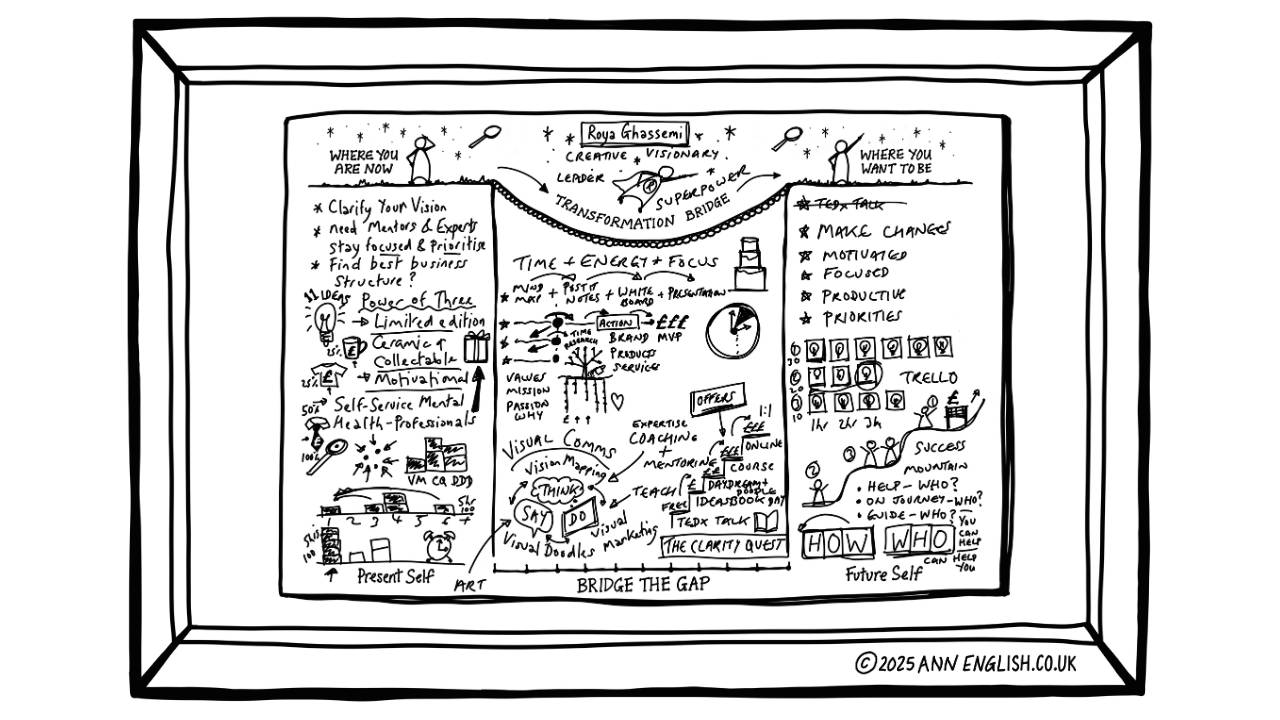 Roya Ghassemi
CREATIVE VISIONARY
LEADER
SUPERPOWER
TRANSFORMATION BRIDGE
WHERE YOU
ARE NOW
* Clarify Your Vision
* need Mentors & Experts
stay focused & Prioritise
* Find best business
structure?
11 IDEAS
Power of Three
→ Limited edition
Ceramic
Collectable
→ Motivational
25%
25%
50%
100%
Self-Service Mental
Health-Professionals
VM CQ DDD
5hr
100
1 2 3 4 5 6 7
100
Present Self
ART
TIME + ENERGY + FOCUS
MIND
MAP
+ POST IT
NOTES
+ WHITE
BOARD
+ PRESENTATION
ACTION → £££
TIME
RESEARCH
BRAND MVP
PRODUCTS
SERVICES
VALUES
MISSION
PASSION
WHY
OFFERS
1:1
£££
ONLINE
£££
COURSE
££
DAYDREAM +
DOODLE
£
IDEASBOOK DAY
FREE
TEDX TALK
THE CLARITY QUEST
EXPERTISE
COACHING
+
MENTORING
TEACH
VISUAL COMMS
Vision Mapping
THINK
SAY
DO
Visual Doodles
Visual
Marketing
BRIDGE THE GAP
WHERE YOU
WANT TO BE
* TEDX TALK
* MAKE CHANGES
* MOTIVATED
* FOCUSED
* PRODUCTIVE
* PRIORITIES
① 30
② 20
③ 10
1hr 2hr 3h
TRELLO
£
①
③
②
SUCCESS
MOUNTAIN
• HELP - WHO?
• ON JOURNEY - WHO?
• GUIDE - WHO?
HOW WHO
YOU
CAN
HELP
CAN HELP
YOU
Future Self
©2025 ANN ENGLISH.CO.UK